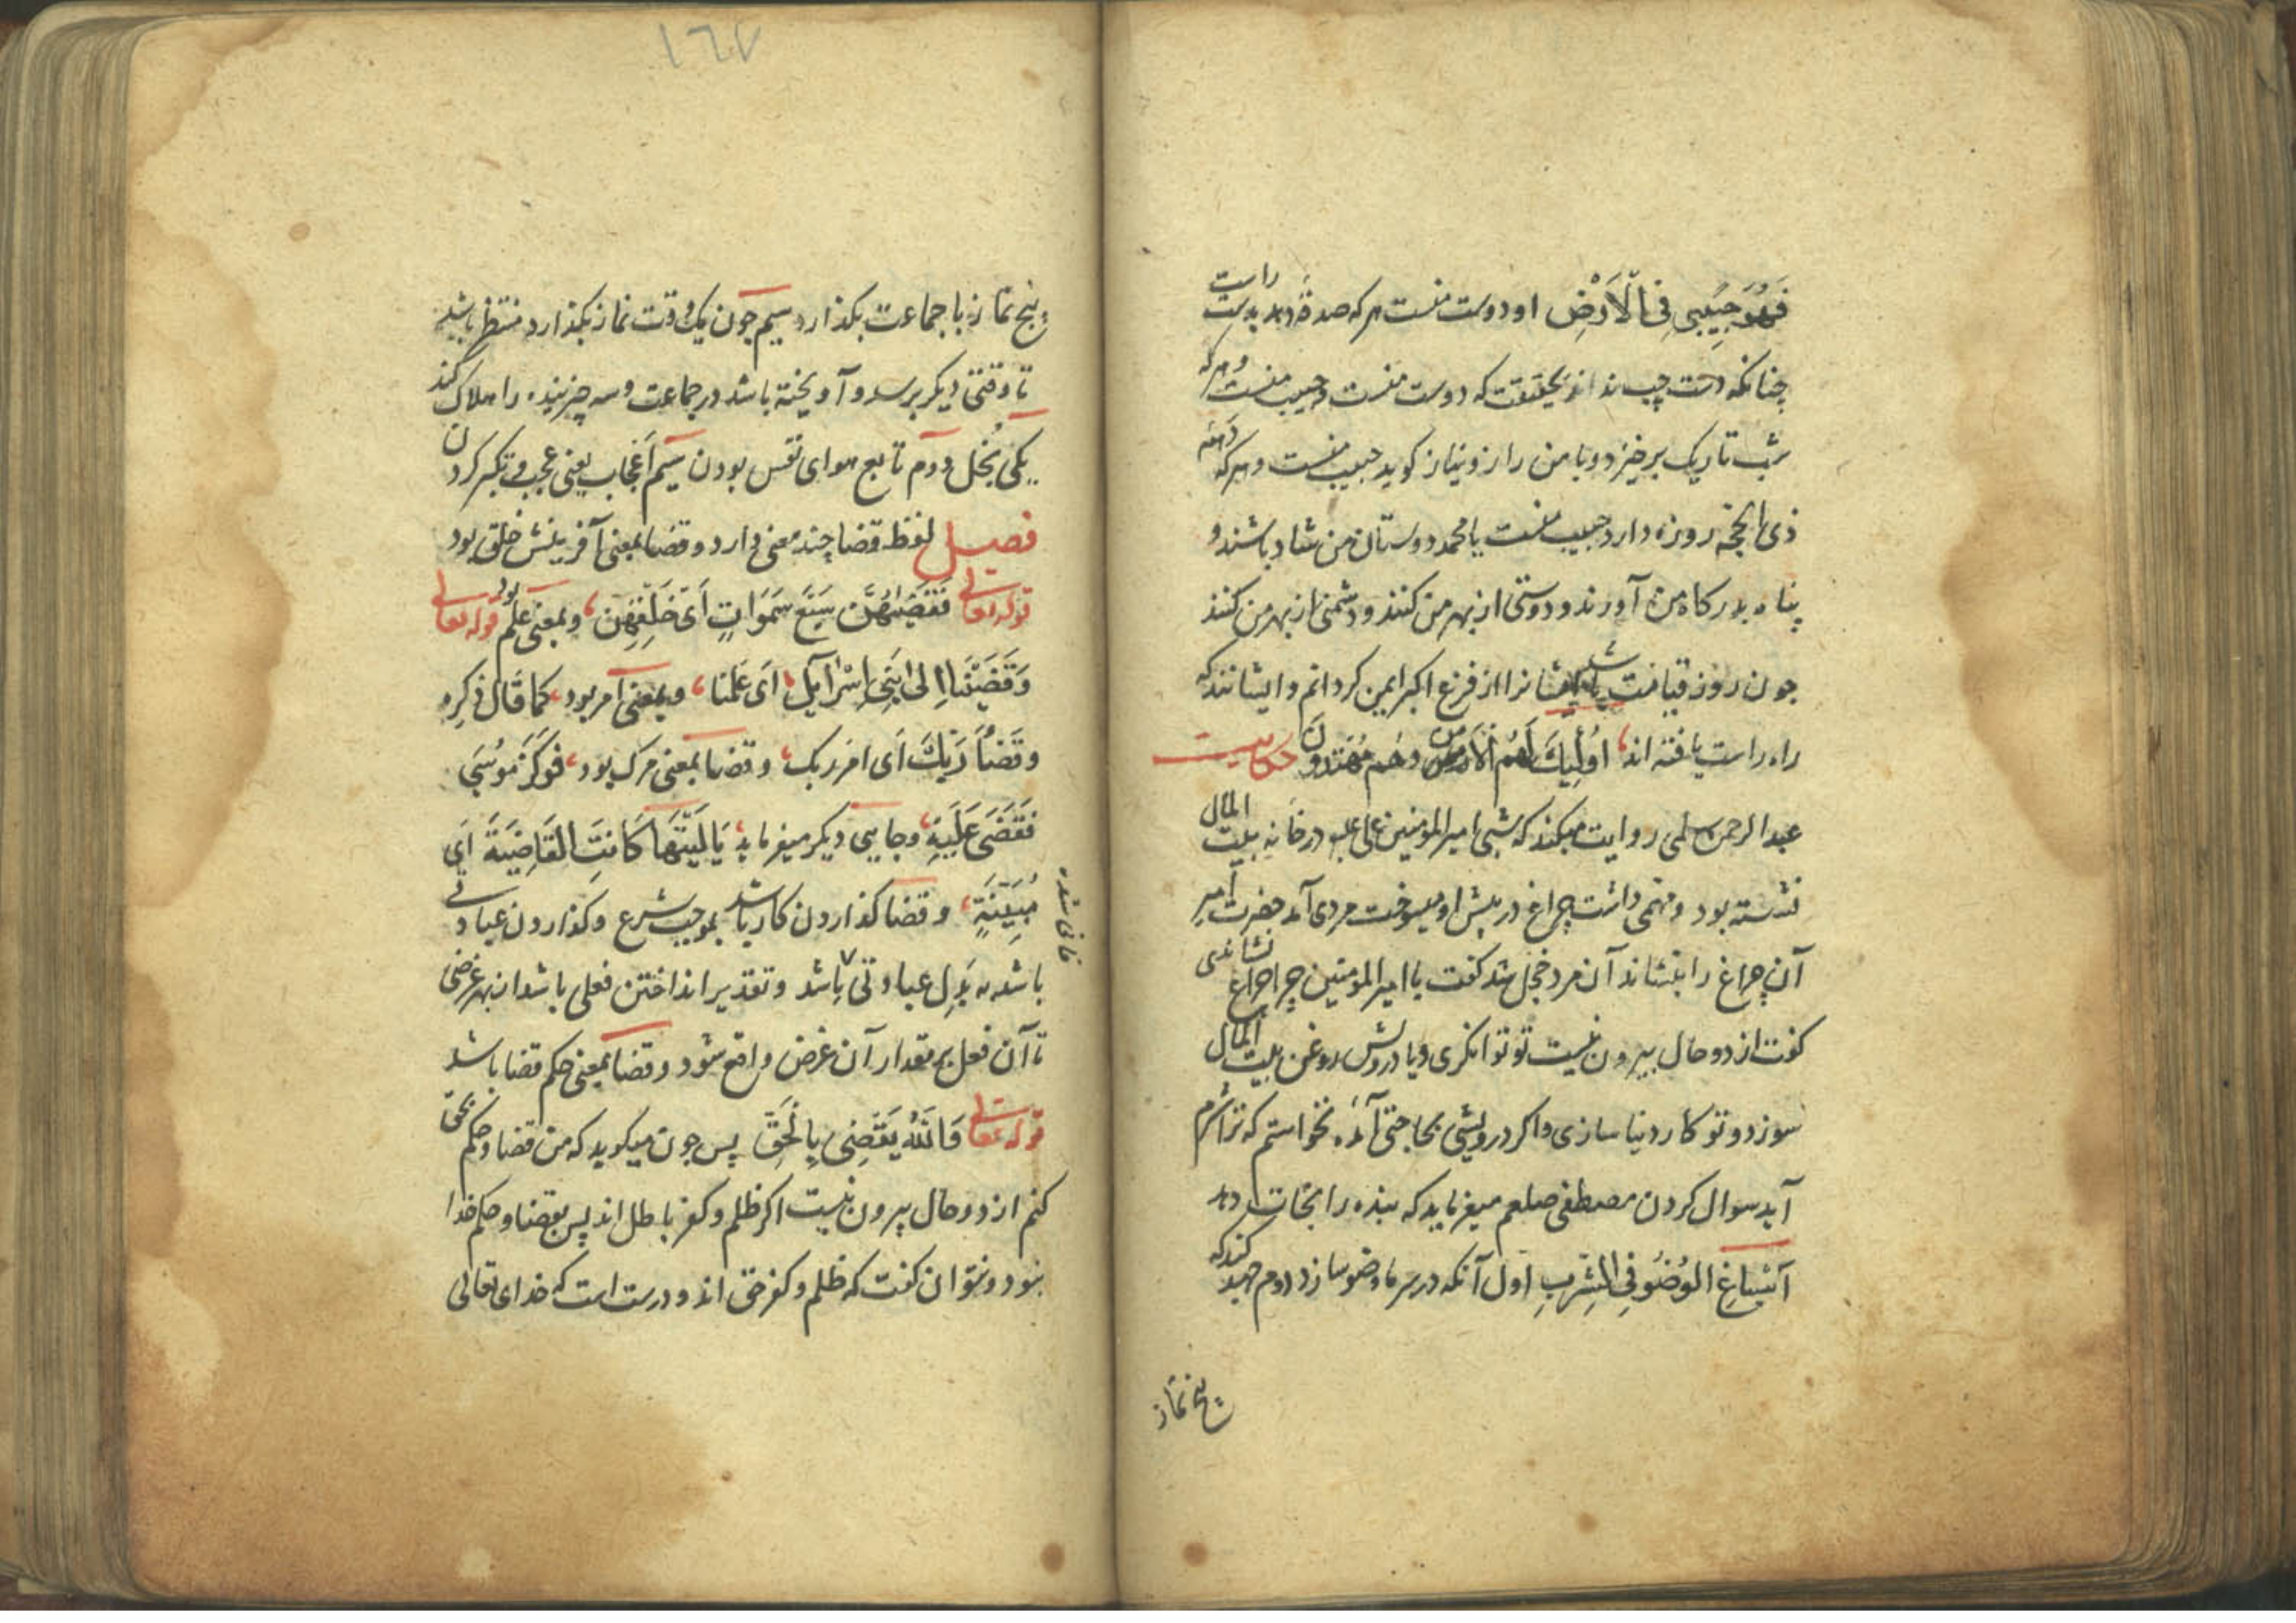 فَهُوَ حَبِيبِي فِي الْاَرْضِ او دوست منست هر که صدقهٔ دهد بدست راست
چنانکه دست چپ نداند بحقیقت که دوست منست و حبیب منست و هر که
شب تاریک برخیزد و با من راز و نیاز کوید حبیب منست و هر که دهه
ذی الحجّه روزه دارد حبیب منست یا محمد دوستان من شاد باشند و
پناه بدرکاه من آورند و دوستی از بهر من کنند و دشمنی از بهر من کنند
جون روز قیامت شد ایشانرا از فزع اکبر ایمن کردانم و ایشانند که
راه راست یافته اند اُولٰئِكَ لَهُم الْاَمن وَهُم مُهْتَدُونَ حکایت
عبد الرحمن سلمی روایت میکند که شبی امیر المومنین علی علیه در خانه بیت المال
نشسته بود و مهمی داشت چراغ در پیش او میسوخت مردی آمد حضرت امیر
آن چراغ را بنشاند آن مرد خجل شد کفت یا امیر المومنین چرا چراغ نشاندی
کفت از دو حال بیرون نیست تو توانکری و یا درویش روغن بیت المال
سوزد و تو کار دنیا سازی و اکر درویشی بحاجتی آمدهٔ نخواستم که ترا شرم
آید سوال کردن مصطفی صلعم میفرماید که بنده را نجات دهد
اَسْبَاغِ الوُضُو فِي السَّرَبِ اول آنکه در سرما وضو سازد دوم جهد کند که
پنج نماز
١٦٧
پنج نماز با جماعت بکذارد سیم جون یک وقت نماز بکذارد منتظر باشد
تا وقتی دیکر برسد و آویخته باشد در جماعت و سه چیز بنده را هلاک کند
یکی بُخل دوم تابع هوای نفس بودن سیم اَعْجاب یعنی عجب و تکبر کردن
فصل لفظ قضا چند معنی دارد و قضا بمعنی آفرینش خلق بود
قوله تعالی فَقَضَیٰهُنَّ سَبْعَ سَمَوَاتٍ اَی خَلَقَهُنَّ و بمعنی علم بود قوله تعالی
وَقَضَیْنَا اِلیٰ بَنِی اِسْرَآئِیلَ اَی عَلمنا و بمعنی امر بود کما قال ذکره
وقَضَیٰ رَبُّكَ اَی امر ربک و قضا بمعنی مرک بود فَوَكَزَهُ مُوسَی
فَقَضَی عَلَیْهِ و جایی دیکر میفرماید یَا لَیْتَهَا كَانَتِ القَاضِیَةَ اَی
مُبِینَةٍ و قضا کذاردن کار باشد بموجب شرع و کذاردن عبادتی
فانی شده
باشد به بدل عبادتی باشد و تقدیر انداختن فعلی باشد از بهر غرضی
تا آن فعل بر مقدار آن غرض واقع شود و قضا بمعنی حکم قضا باشد
قوله تعالی وَاللّٰهُ یَقْضِی بِالْحَقِّ پس جون میکوید که من قضا و حکم بحق
کنم از دو حال بیرون نیست اکر ظلم و کفر باطل اند پس بقضا و حکم خدا
نبود و نتوان کفت که ظلم و کفر حق اند و درست است که خدای تعالی